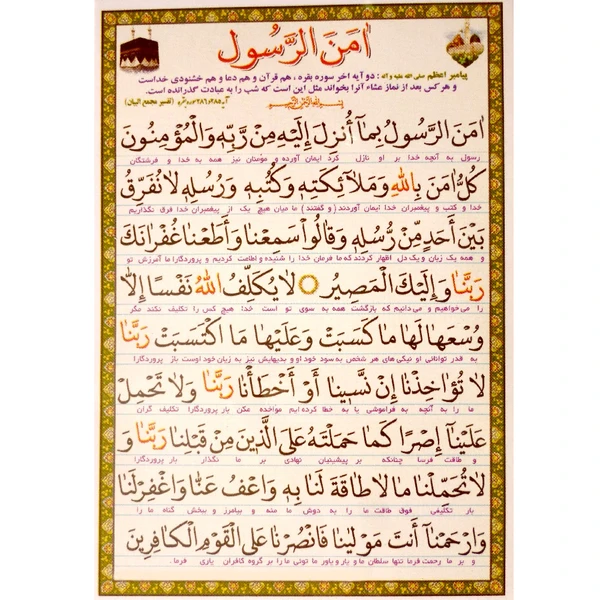 اٰمَنَ الرَّسُول
پیامبر اعظم صلی الله علیه و آله : دو آیه اخر سوره بقره ، هم قرآن و هم دعا و هم خشنودی خداست
و هر کس بعد از نماز عشاء آنرا بخواند مثل این است که شب را به عبادت گذرانده است.
(تفسیر مجمع البیان) آیه ۲۸۵و۲۸۶سوره بقره
بِسْمِ اللهِ الرَّحْمٰنِ الرَّحِيمِ
اٰمَنَ الرَّسُولُ بِمآ اُنْزِلَ اِلَيْهِ مِنْ رَبِّهٖ وَالْمُؤْمِنُونَ
رسول به آنچه خدا بر او نازل کرد ایمان آورده و مؤمنان نیز همه به خدا و فرشتگان
كُلٌّ اٰمَنَ بِاللهِ وَمَلآئِكَتِهٖ وَكُتُبِهٖ وَرُسُلِهٖ لانُفَرِّقُ
خدا و کتب و پیغمبران خدا ایمان آوردند (و گفتند) ما میان هیچ یک از پیغمبران خدا فرق نگذاریم
بَيْنَ اَحَدٍ مِنْ رُسُلِهٖ وَقالُوا سَمِعْنا وَاَطَعْنا غُفْرانَكَ
و همه یک زبان و یک دل اظهار کردند که ما فرمان خدا را شنیده و اطاعت کردیم و پروردگارا ما آمرزش تو
رَبَّنا وَاِلَيْكَ الْمَصيرُ لايُكَلِّفُ اللهُ نَفْسًا اِلّا
را می‌خواهیم و می‌دانیم که بازگشت همه به سوی تو است خدا هیچ کس را تکلیف نکند مگر
وُسْعَها لَها ما كَسَبَتْ وَعَلَيْها مَا اكْتَسَبَتْ رَبَّنا
به قدر توانائی او نیکی های هر شخص به سود خود او و بدیهایش نیز به زیان خود اوست باز پروردگارا
لا تُؤاخِذْنا اِنْ نَسينا اَوْ اَخْطَأْنا رَبَّنا وَلا تَحْمِلْ
ما را به آنچه به فراموشی یا به خطا کرده ایم مواخذه مکن بار پروردگارا تکلیف گران
عَلَيْنآ اِصْرًا كَما حَمَلْتَهُ عَلَى الَّذينَ مِنْ قَبْلِنا رَبَّنا وَ
و طاقت فرسا چنانکه بر پیشینیان نهادی بر ما نگذار بار پروردگارا
لاتُحَمِّلْنا ما لاطاقَةَ لَنا بِهٖ وَاعْفُ عَنّا وَاغْفِرْلَنا
بار تکلیفی فوق طاقت ما را به دوش ما منه و بیامرز و ببخش گناه ما را
وَارْحَمْنآ اَنْتَ مَوْلينا فَانْصُرْنا عَلَى الْقَوْمِ الْكافِرينَ
و بر ما رحمت فرما تنها سلطان ما و یار و یاور ما توئی ما را بر گروه کافران یاری فرما.